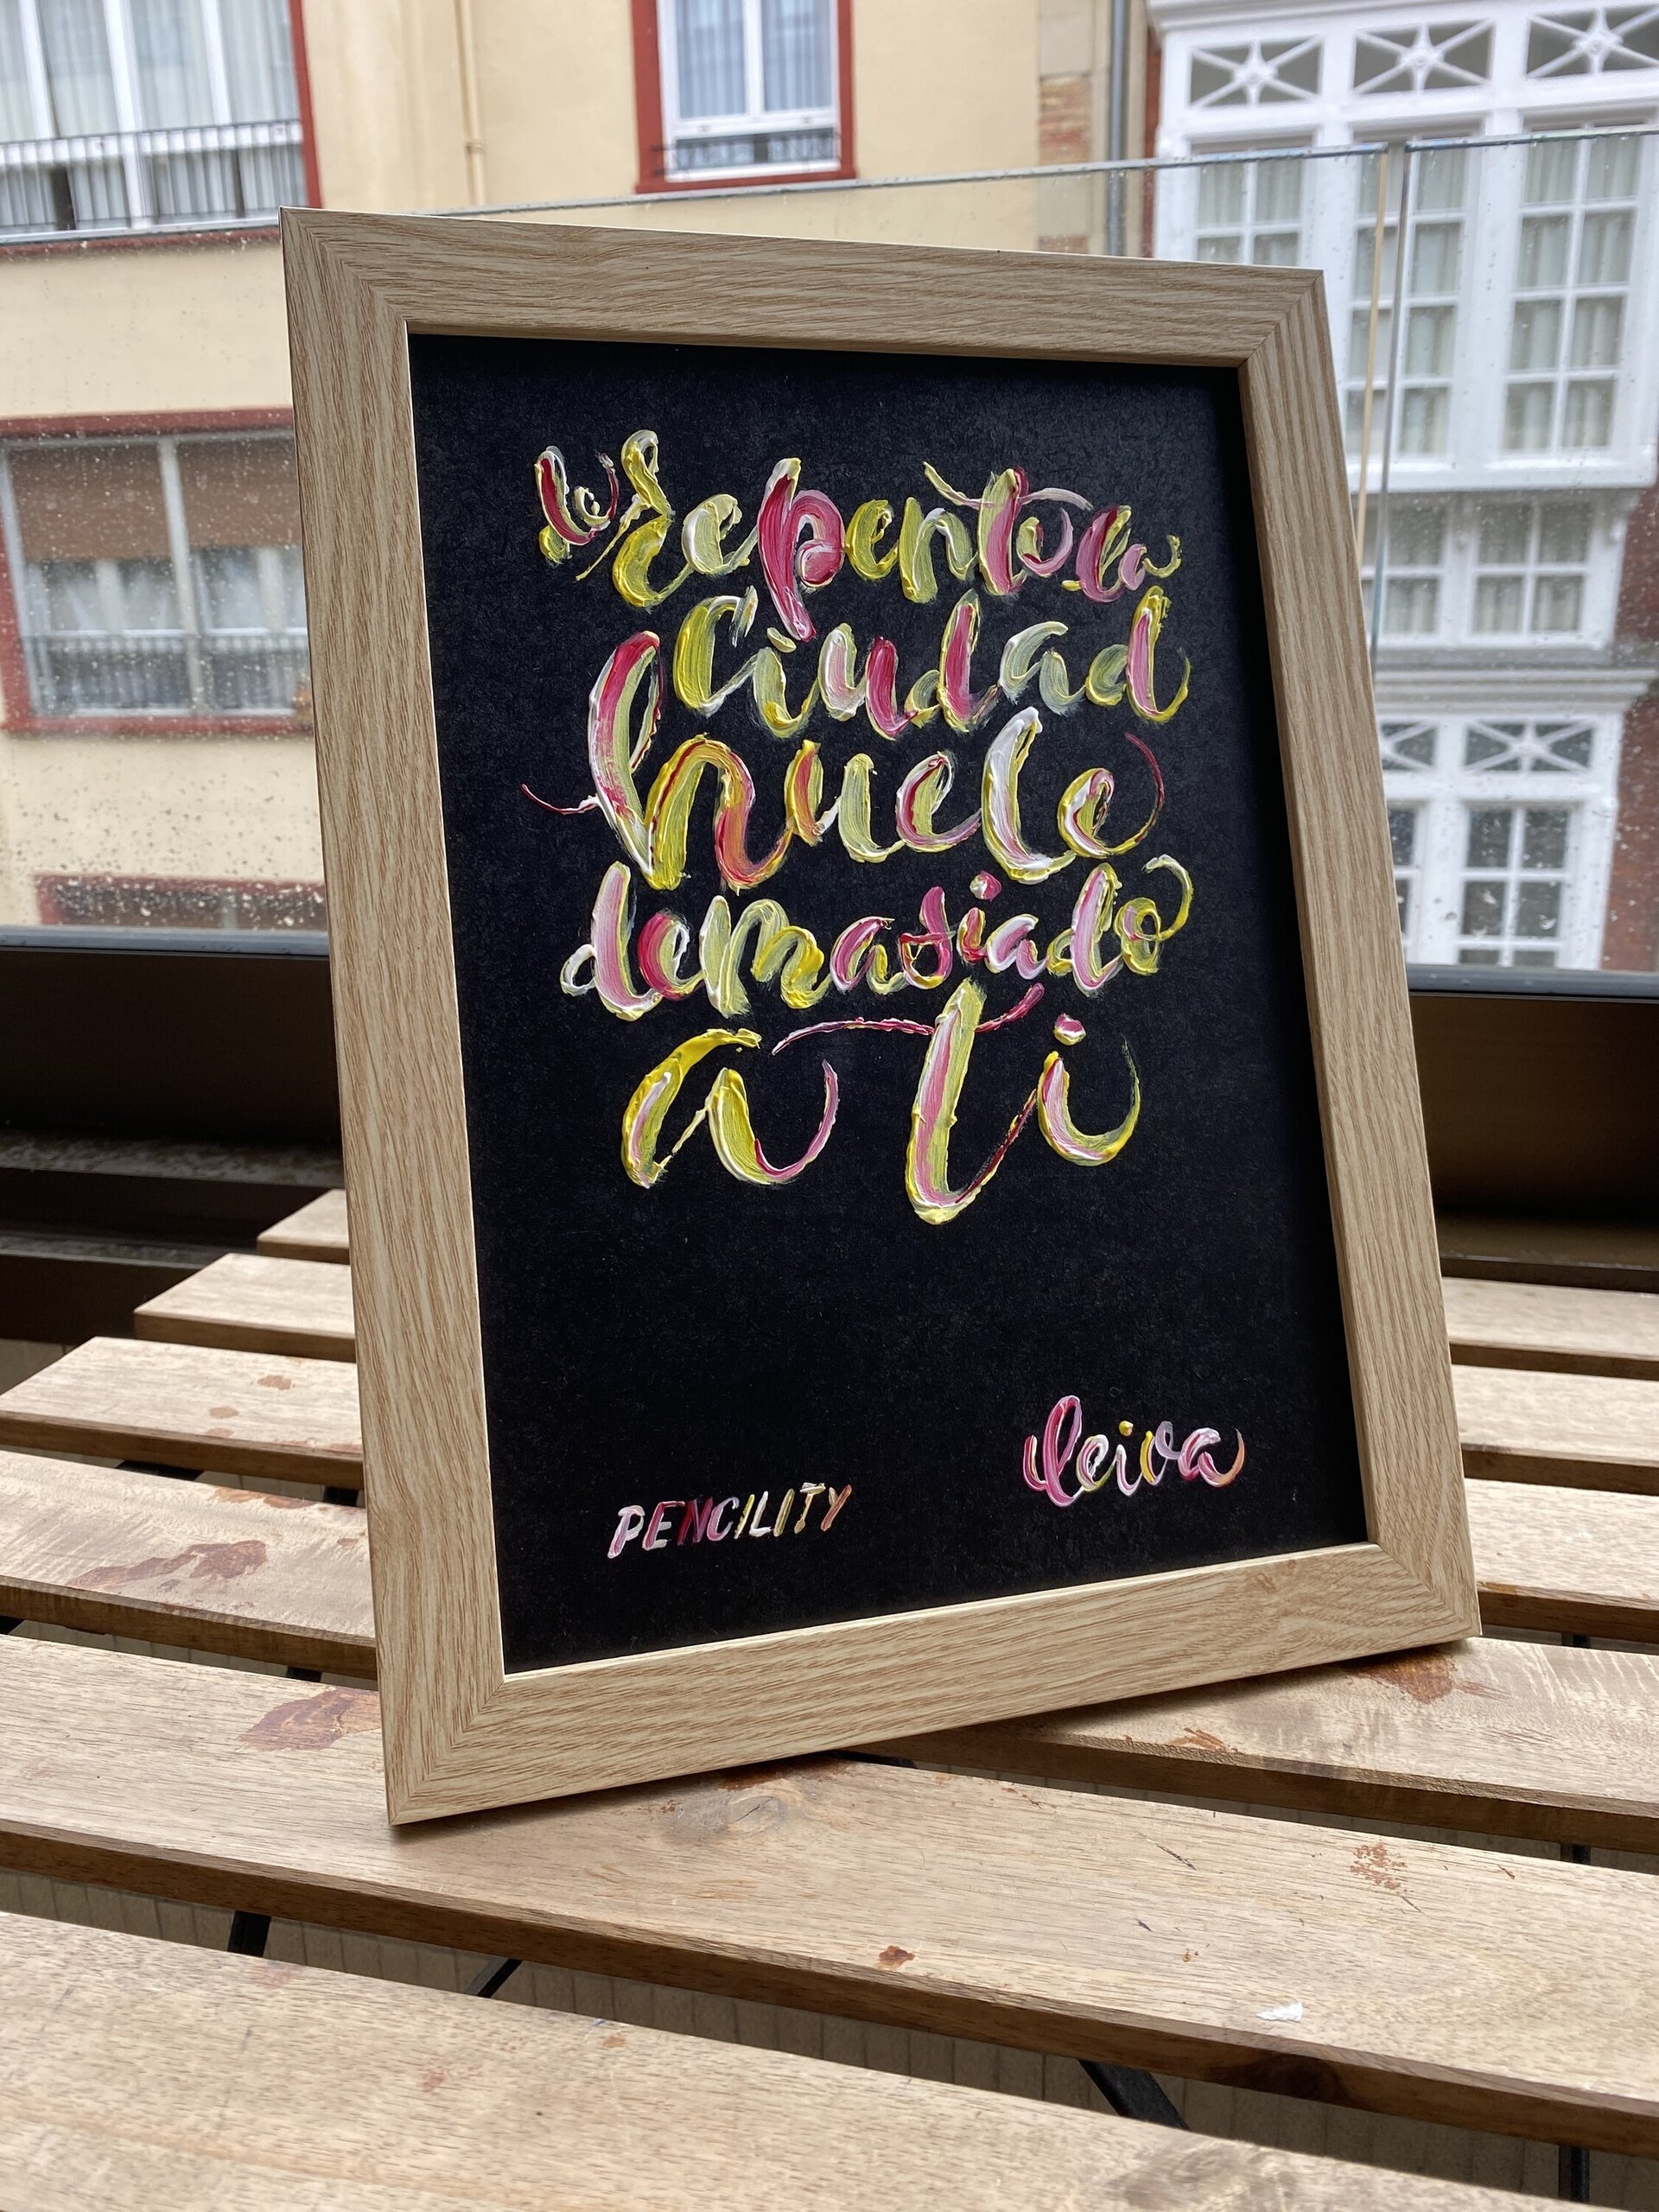 de repente la
ciudad
huele
demasiado
a ti
leiva
PENCILITY